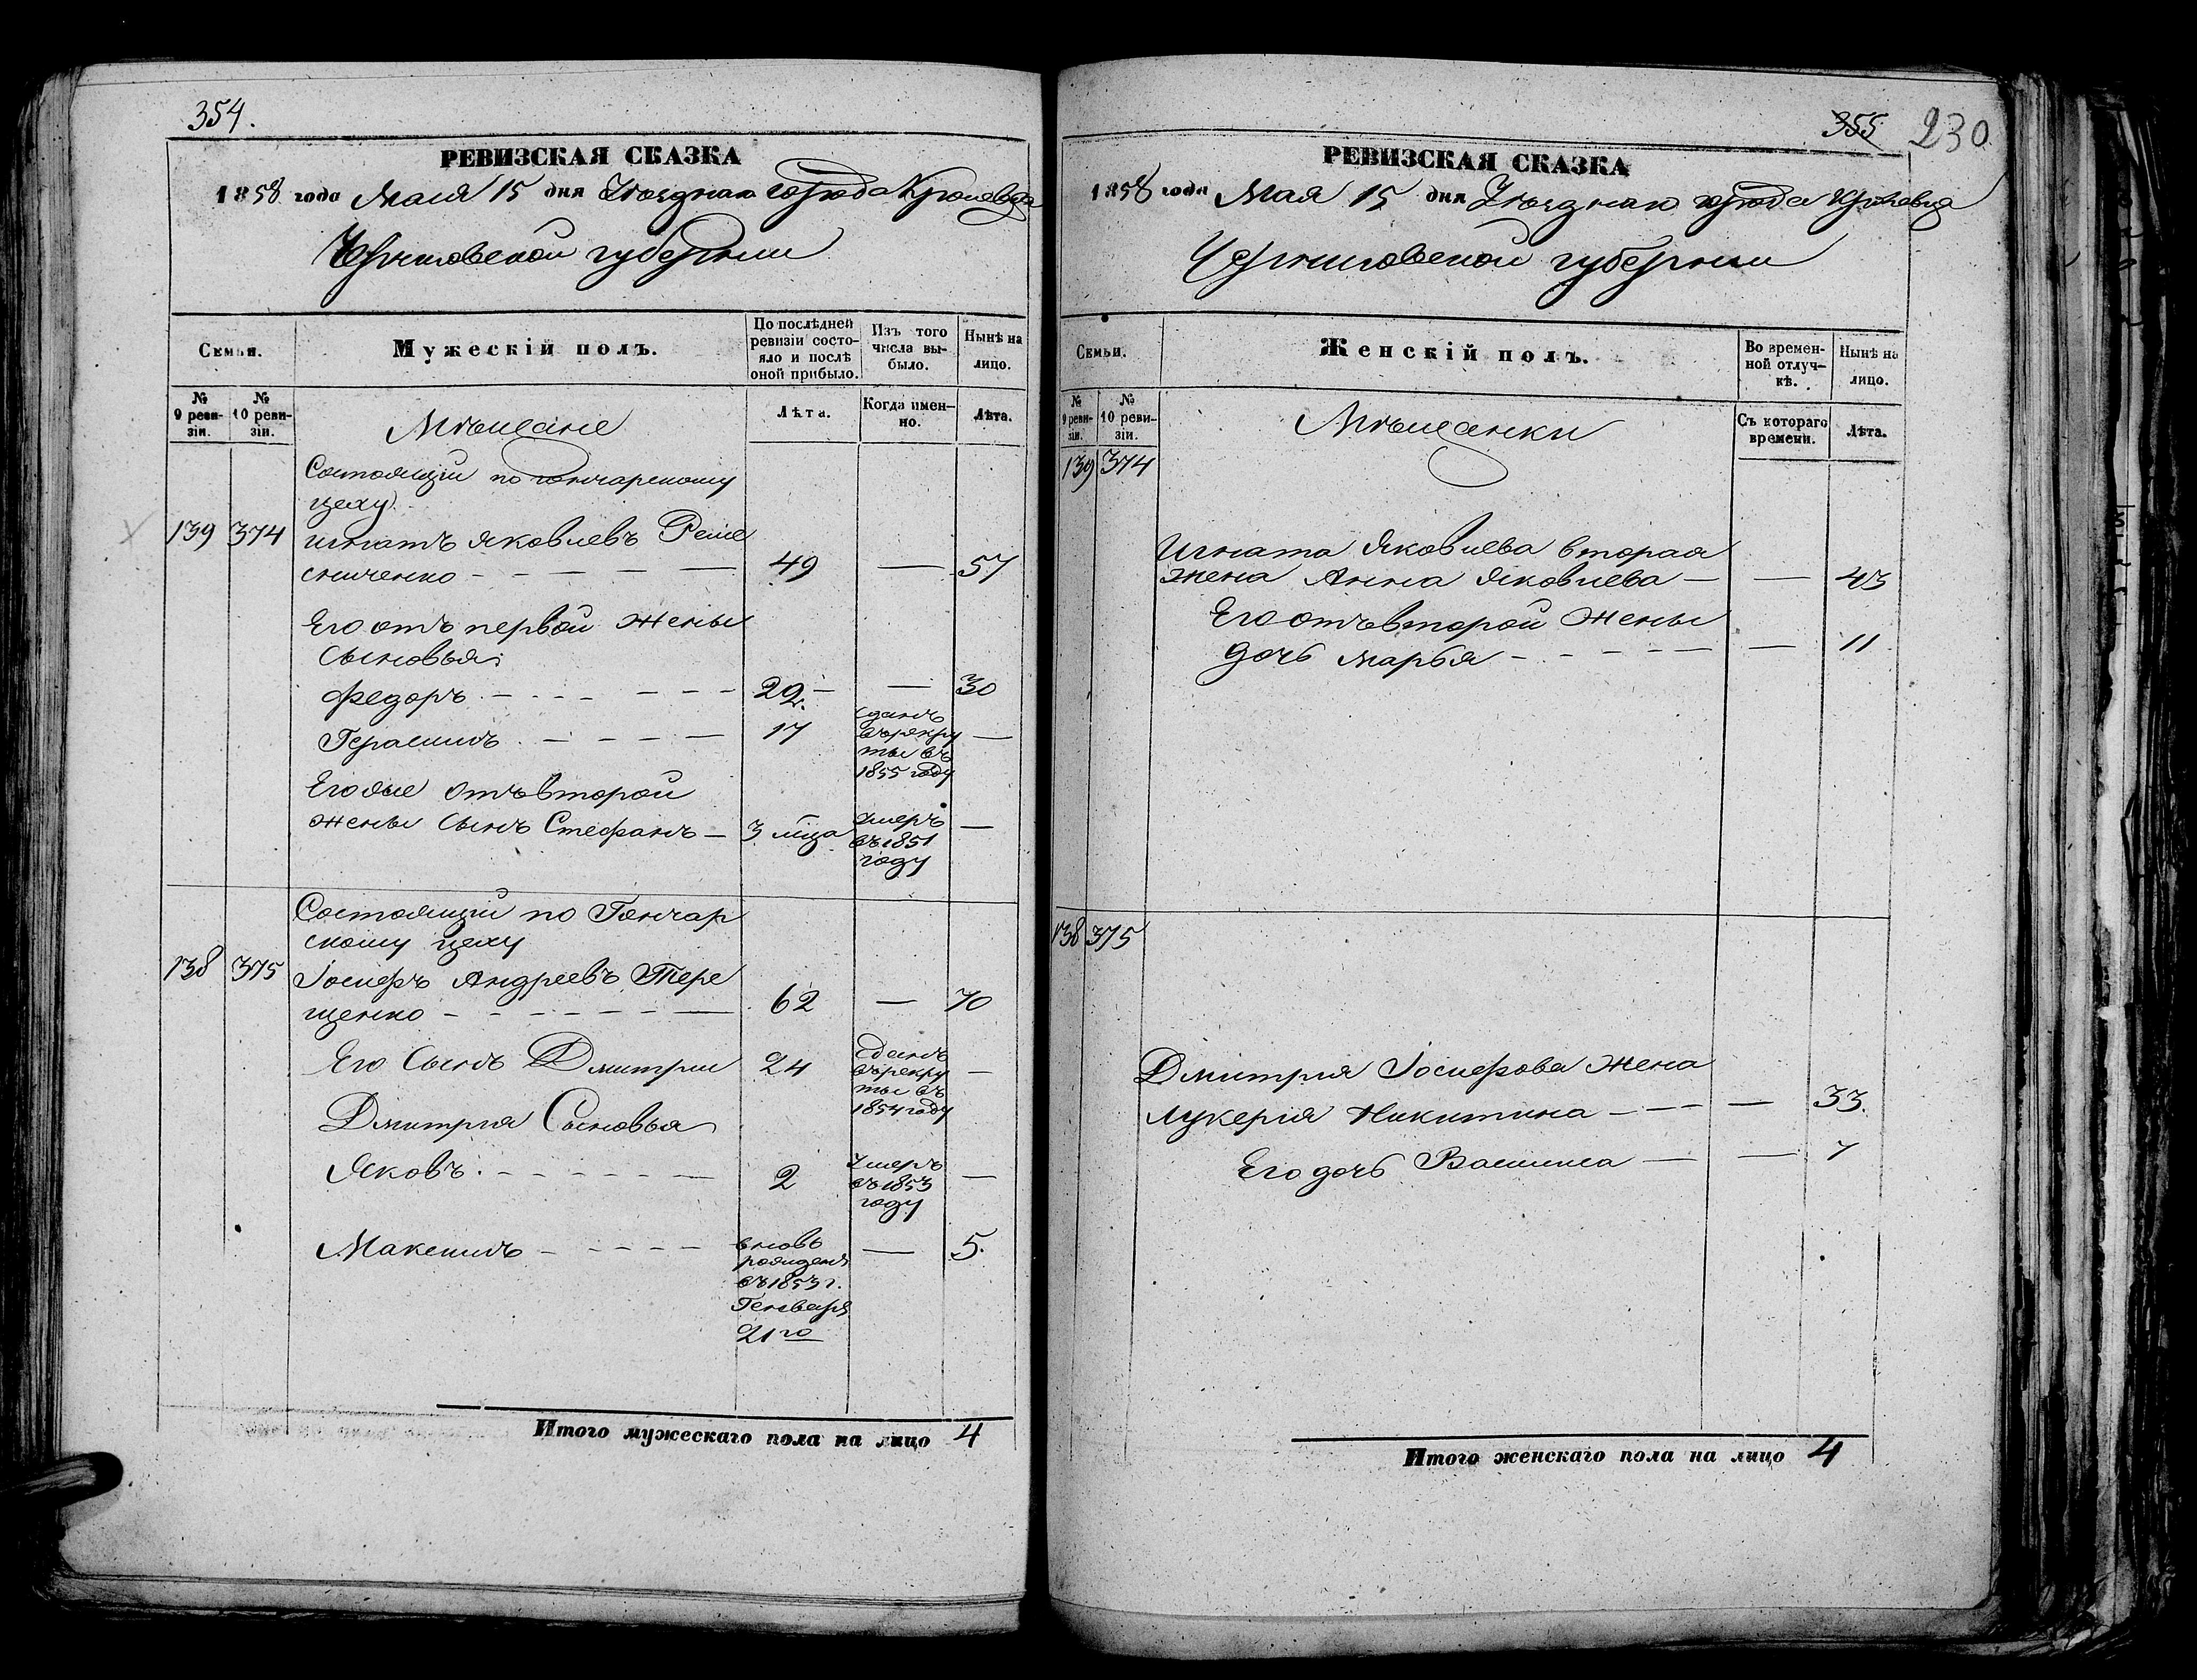 354.
РЕВИЗСКАЯ СКАЗКА
1858 года Маія 15 дня Уѣзднаго города Кролевца
Черниговской губерніи
Семьи.
Мужескій полъ.
По послѣдней ревизіи состояло и послѣ оной прибыло.
Изъ того числа выбыло.
Нынѣ на лицо.
№ 9 ревизіи.
№ 10 ревизіи.
Мѣщане
Лѣта.
Когда именно.
Лѣта.
Состоящій по гончарскому
цеху.
139 374 Игнатъ Яковлевъ Реше
сниченко - - - - 49 — 57
Его отъ первой жены
сыновья
Федоръ. - - - - - - 22. — 30
Герасимъ - - - - 17 Сданъ въ рекруты въ 1855 году —
Его же отъ второй
жены сынъ Стефанъ — 3 мца Умеръ въ 1851 году —
Состоящій по Гончар
скому цеху
138 375 Іосифъ Андреевъ Тере
щенко - - - - - - 62 — 70
Его Сынъ Дмитрій 24 Сданъ въ рекруты въ 1854 году —
Дмитрия Сыновья
Яковъ. - - - - - - 2 Умеръ въ 1853 году —
Максимъ - - - - - вновь рожденъ въ 1853 г. Генваря 21го — 5.
Итого мужескаго пола на лицо 4
355 230
РЕВИЗСКАЯ СКАЗКА
1858 года Мая 15 дня Уѣзднаго города Кролевца
Черниговской губерніи
Семьи.
Женскій полъ.
Во временной отлучкѣ.
Нынѣ на лицо.
№ 9 ревизіи.
№ 10 ревизіи.
Мѣщанки
Съ котораго времени.
Лѣта.
139 374
Игната Яковлева вторая
жена Анна Яковлева — — 43
Его отъ второй жены
дочь Марья - - - - - — 11
138 375
Дмитрия Іосифова жена
Лукерія Никитина - - - — 33.
Его дочь Василиса — — 7
Итого женскаго пола на лицо 4